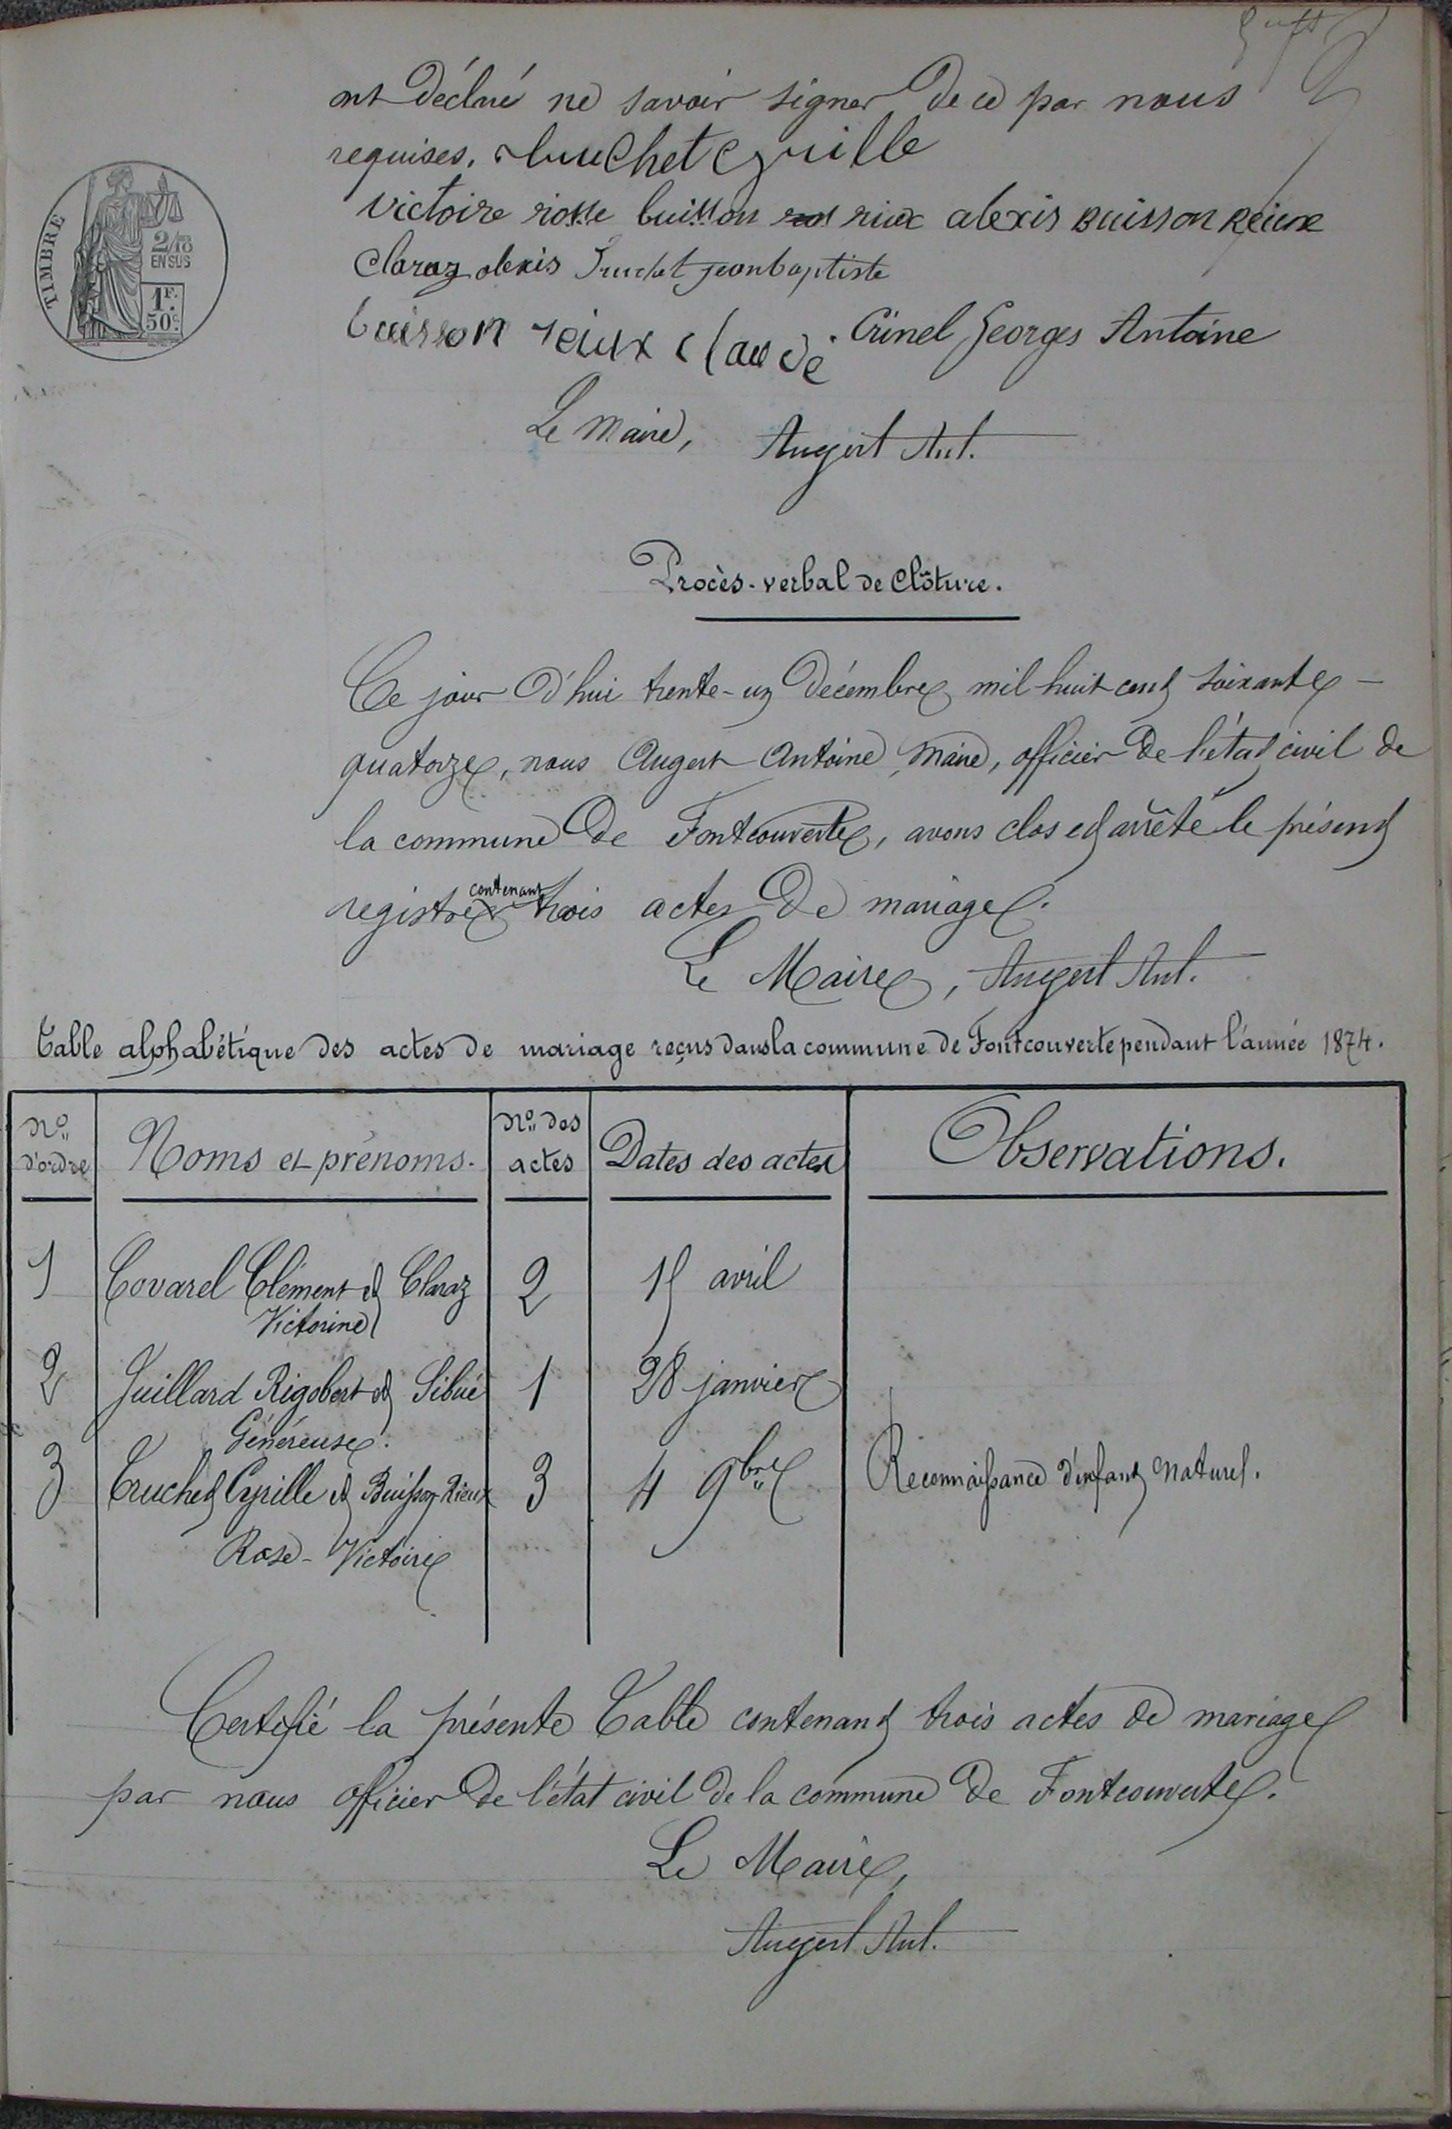 ont déclaré ne savoir signer de ce par nous
requises. truchet cyrille
victoire rosse buisson riox alexis Buisson Reiux
claraz alexis Truchet jeanbaptiste
buisson reiux claude Crinel Georges Antoine
Le Maire, Augert Ant.
TIMBRE
2/10
EN SUS
1F.
50c.
Procès-verbal de Clôture.
Ce jour d'hui trente-un décembre mil huit cent soixante-
quatorze, nous Augert Antoine, Maire, officier de l'état civil de
la commune de Fontcouverte, avons clos et arrêté le présent
registre contenant trois actes de mariage.
Le Maire, Augert Ant.
Table alphabétique des actes de mariage reçus dans la commune de Fontcouverte pendant l'année 1874.
No d'ordre Noms et prénoms. No des actes Dates des actes Observations.
1 Covarel Clément et Claraz 2 15 avril
Victorine
2 Juillard Rigobert et Sibué 1 28 janvier
Généreuse.
3 Truchet Cyrille et Buisson-Rieux 3 4 9bre Reconnaissance d'enfant naturel.
Rose-Victoire
Certifié la présente Table contenant trois actes de mariage
par nous officier de l'état civil de la commune de Fontcouverte.
Le Maire,
Augert Ant.